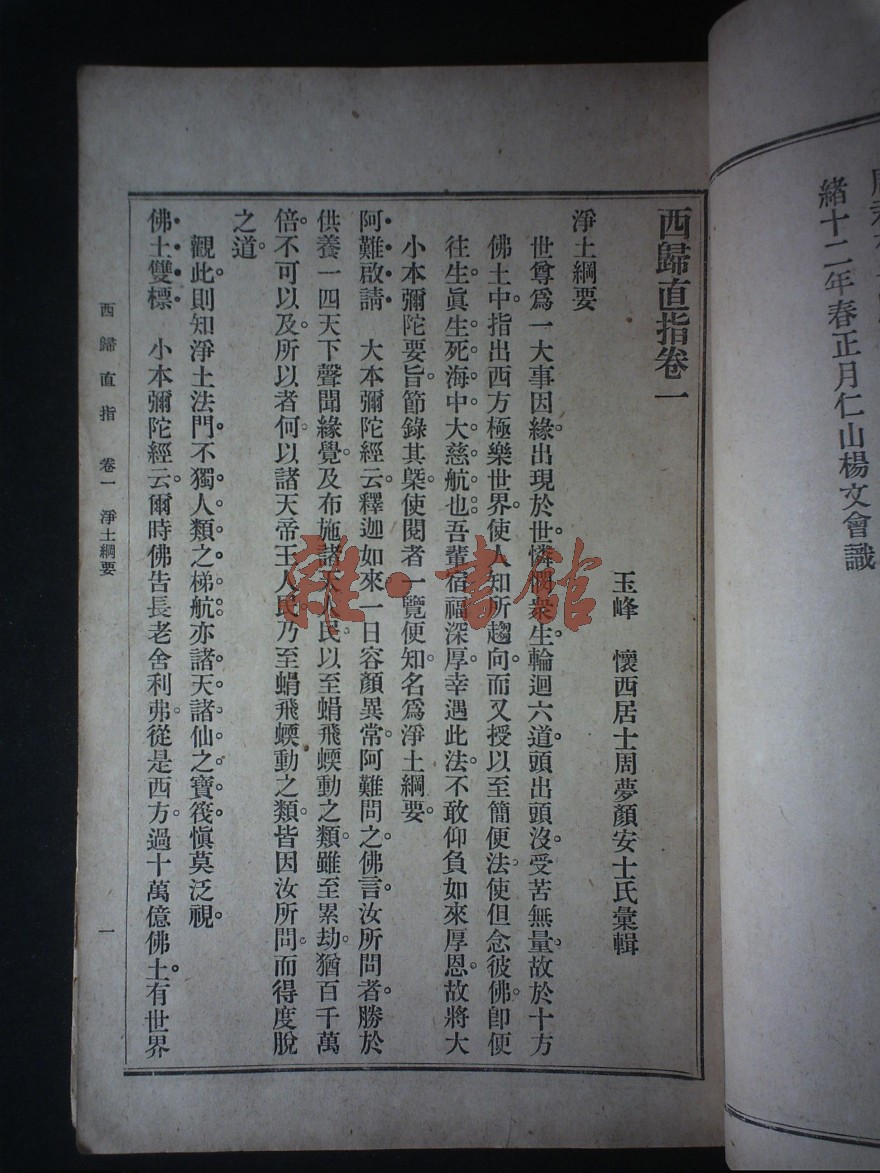 緒十二年春正月仁山楊文會識
西歸直指卷一
玉峰　懷西居士周夢顏安士氏彙輯
淨土綱要
世尊爲一大事因緣出現於世。憐憫衆生。輪迴六道。頭出頭沒。受苦無量。故於十方
佛土中。指出西方極樂世界。使人知所趨向。而又授以至簡便法。使但念彼佛。卽便
往生。眞生死海中大慈航也。吾輩宿福深厚。幸遇此法。不敢仰負如來厚恩。故將大
小本彌陀要旨。節錄其槩。使閱者一覽便知。名爲淨土綱要。
阿難啟請　大本彌陀經云。釋迦如來。一日容顏異常。阿難問之。佛言。汝所問者。勝於
供養一四天下聲聞緣覺。及布施諸天人民。以至蜎飛蝡動之類。雖至累劫。猶百千萬
倍。不可以及。所以者何。以諸天帝王人民。乃至蜎飛蝡動之類。皆因汝所問。而得度脫
之道。
觀此。則知淨土法門。不獨人類之梯航。亦諸天諸仙之寶筏。愼莫泛視。
佛土雙標　小本彌陀經云。爾時佛告長老舍利弗。從是西方。過十萬億佛土。有世界
西歸直指　卷一　淨土綱要
一
雜·書館